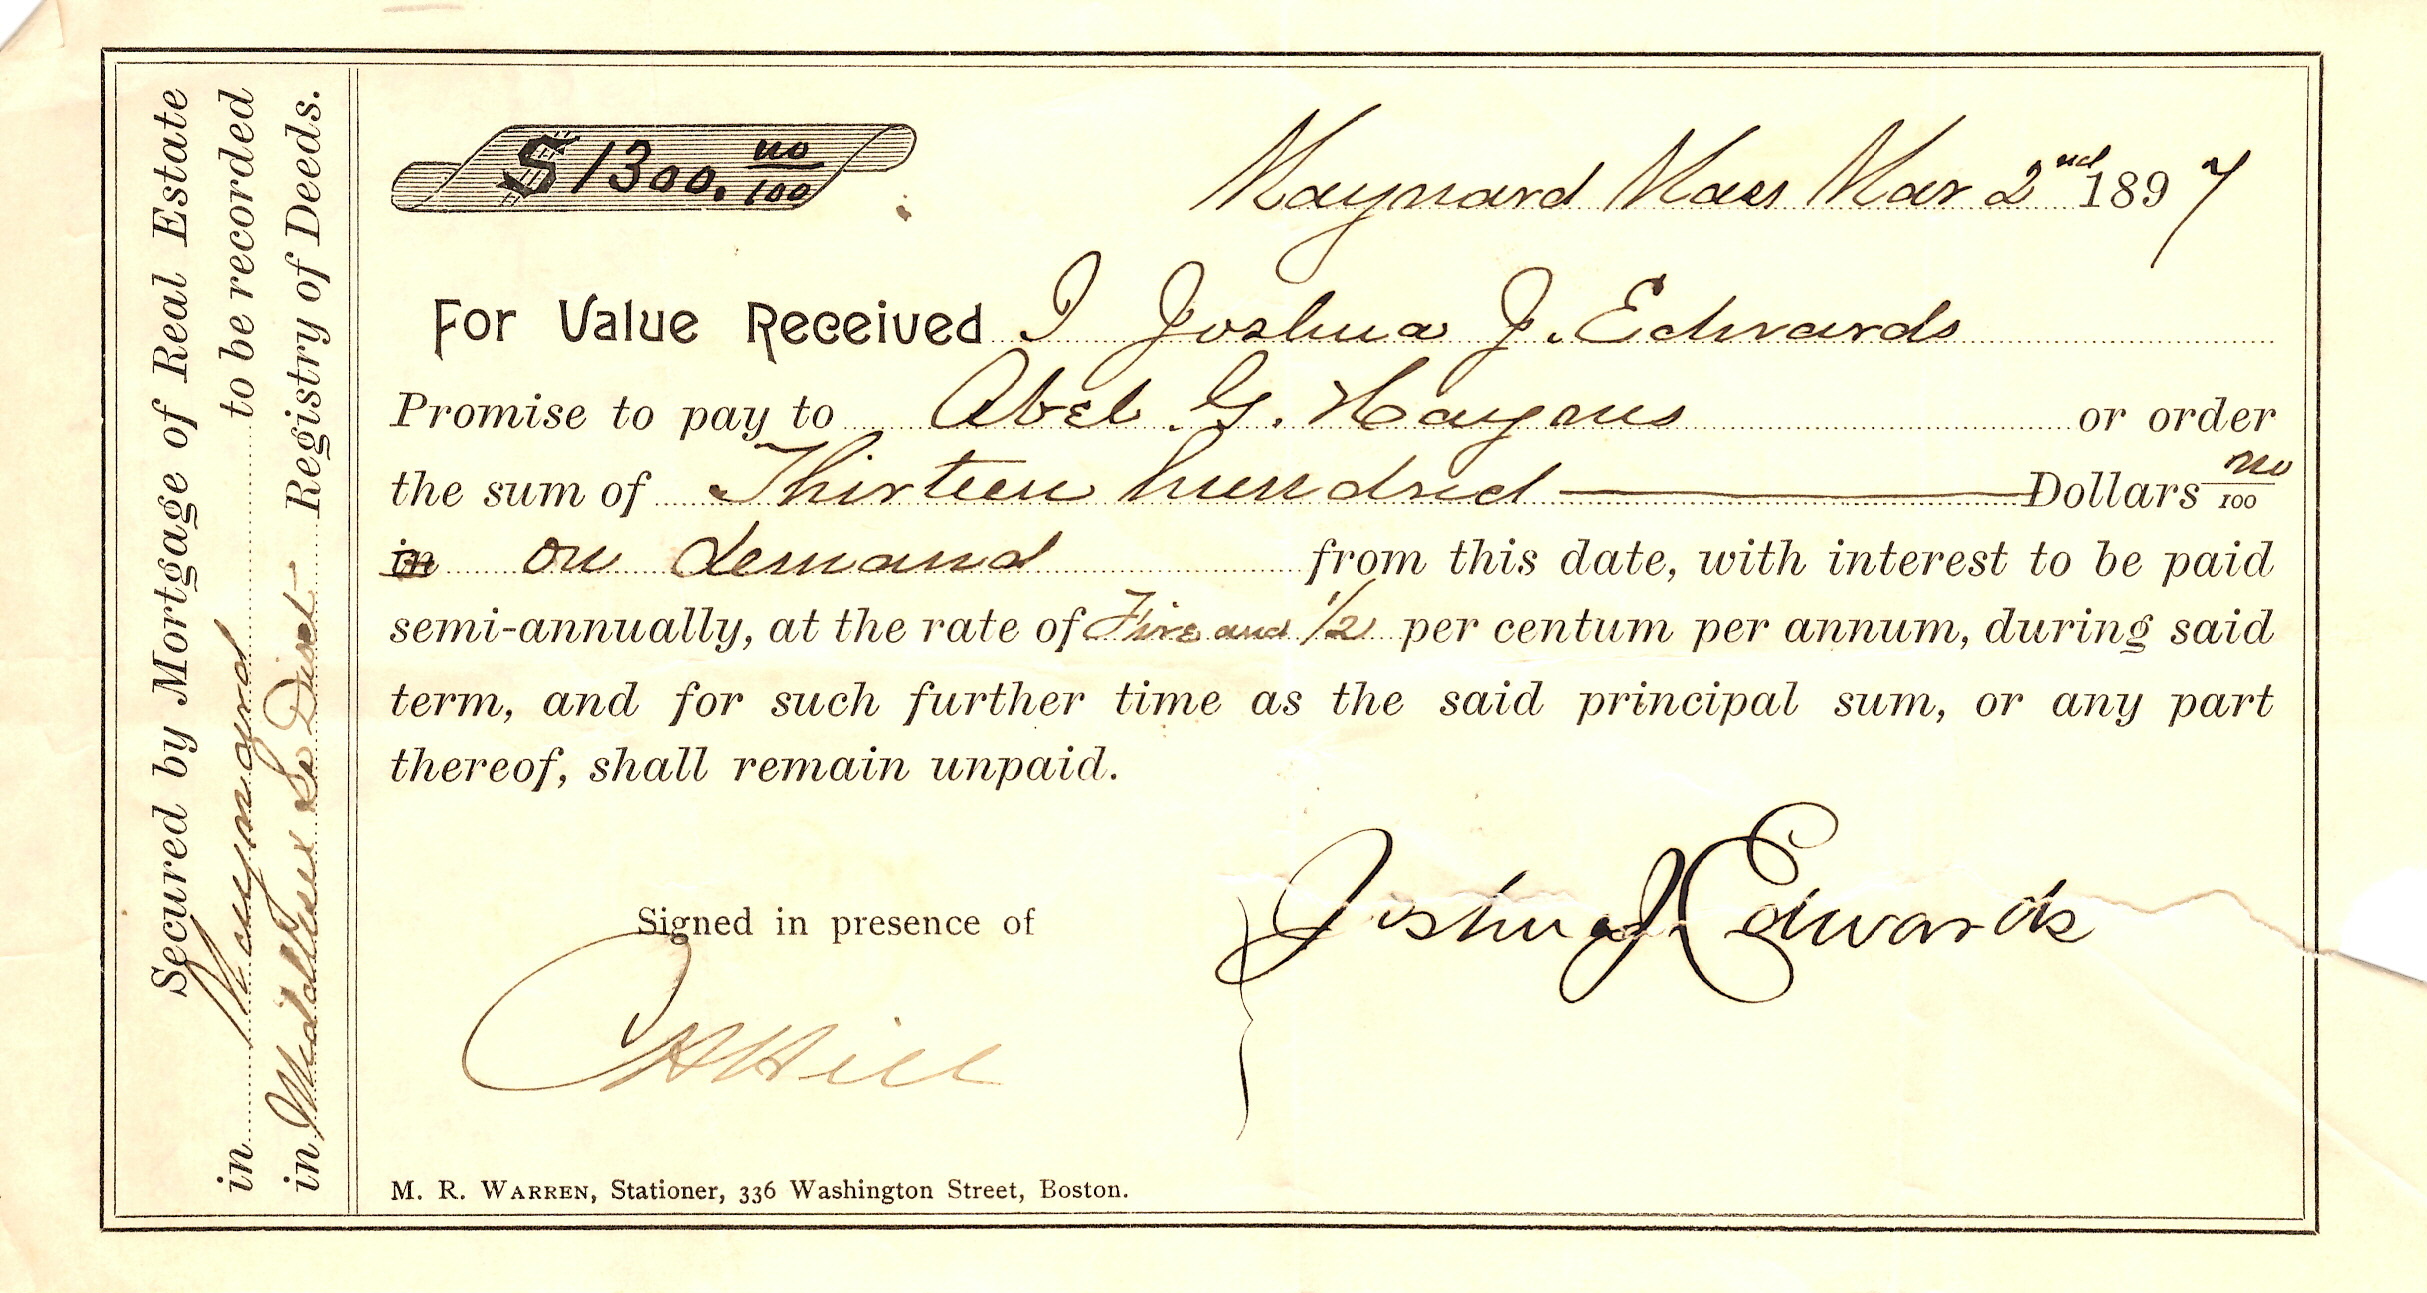 Secured by Mortgage of Real Estate
in Maynard to be recorded
in Middlesex So Dist Registry of Deeds.
$1300. no/100
Maynard Mass Mar 2nd 1897
For Value Received I Joshua J. Edwards
Promise to pay to Abel G. Haynes or order
the sum of Thirteen hundred Dollars no/100
in on demand from this date, with interest to be paid
semi-annually, at the rate of Five and 1/2 per centum per annum, during said
term, and for such further time as the said principal sum, or any part
thereof, shall remain unpaid.
Signed in presence of
Joshua J Edwards
Hill
M. R. WARREN, Stationer, 336 Washington Street, Boston.